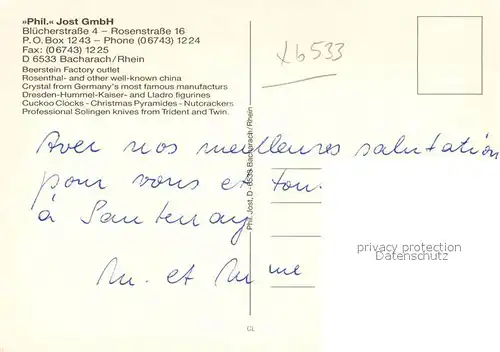 »Phil.« Jost GmbH
Blücherstraße 4 – Rosenstraße 16
P.O. Box 1243 – Phone (06743) 1224
Fax: (06743) 1225
D 6533 Bacharach/Rhein
Beerstein Factory outlet
Rosenthal- and other well-known china
Crystal from Germany's most famous manufacturs
Dresden-Hummel-Kaiser- and Lladro figurines
Cuckoo Clocks - Christmas Pyramides - Nutcrackers
Professional Solingen knives from Trident and Twin.
xb533
Phil. Jost, D - 6533 Bacharach/Rhein
Avec nos meilleures salutation
pour vous et tou.
à Santenay
M. et Mme
privacy protection
Datenschutz
CL